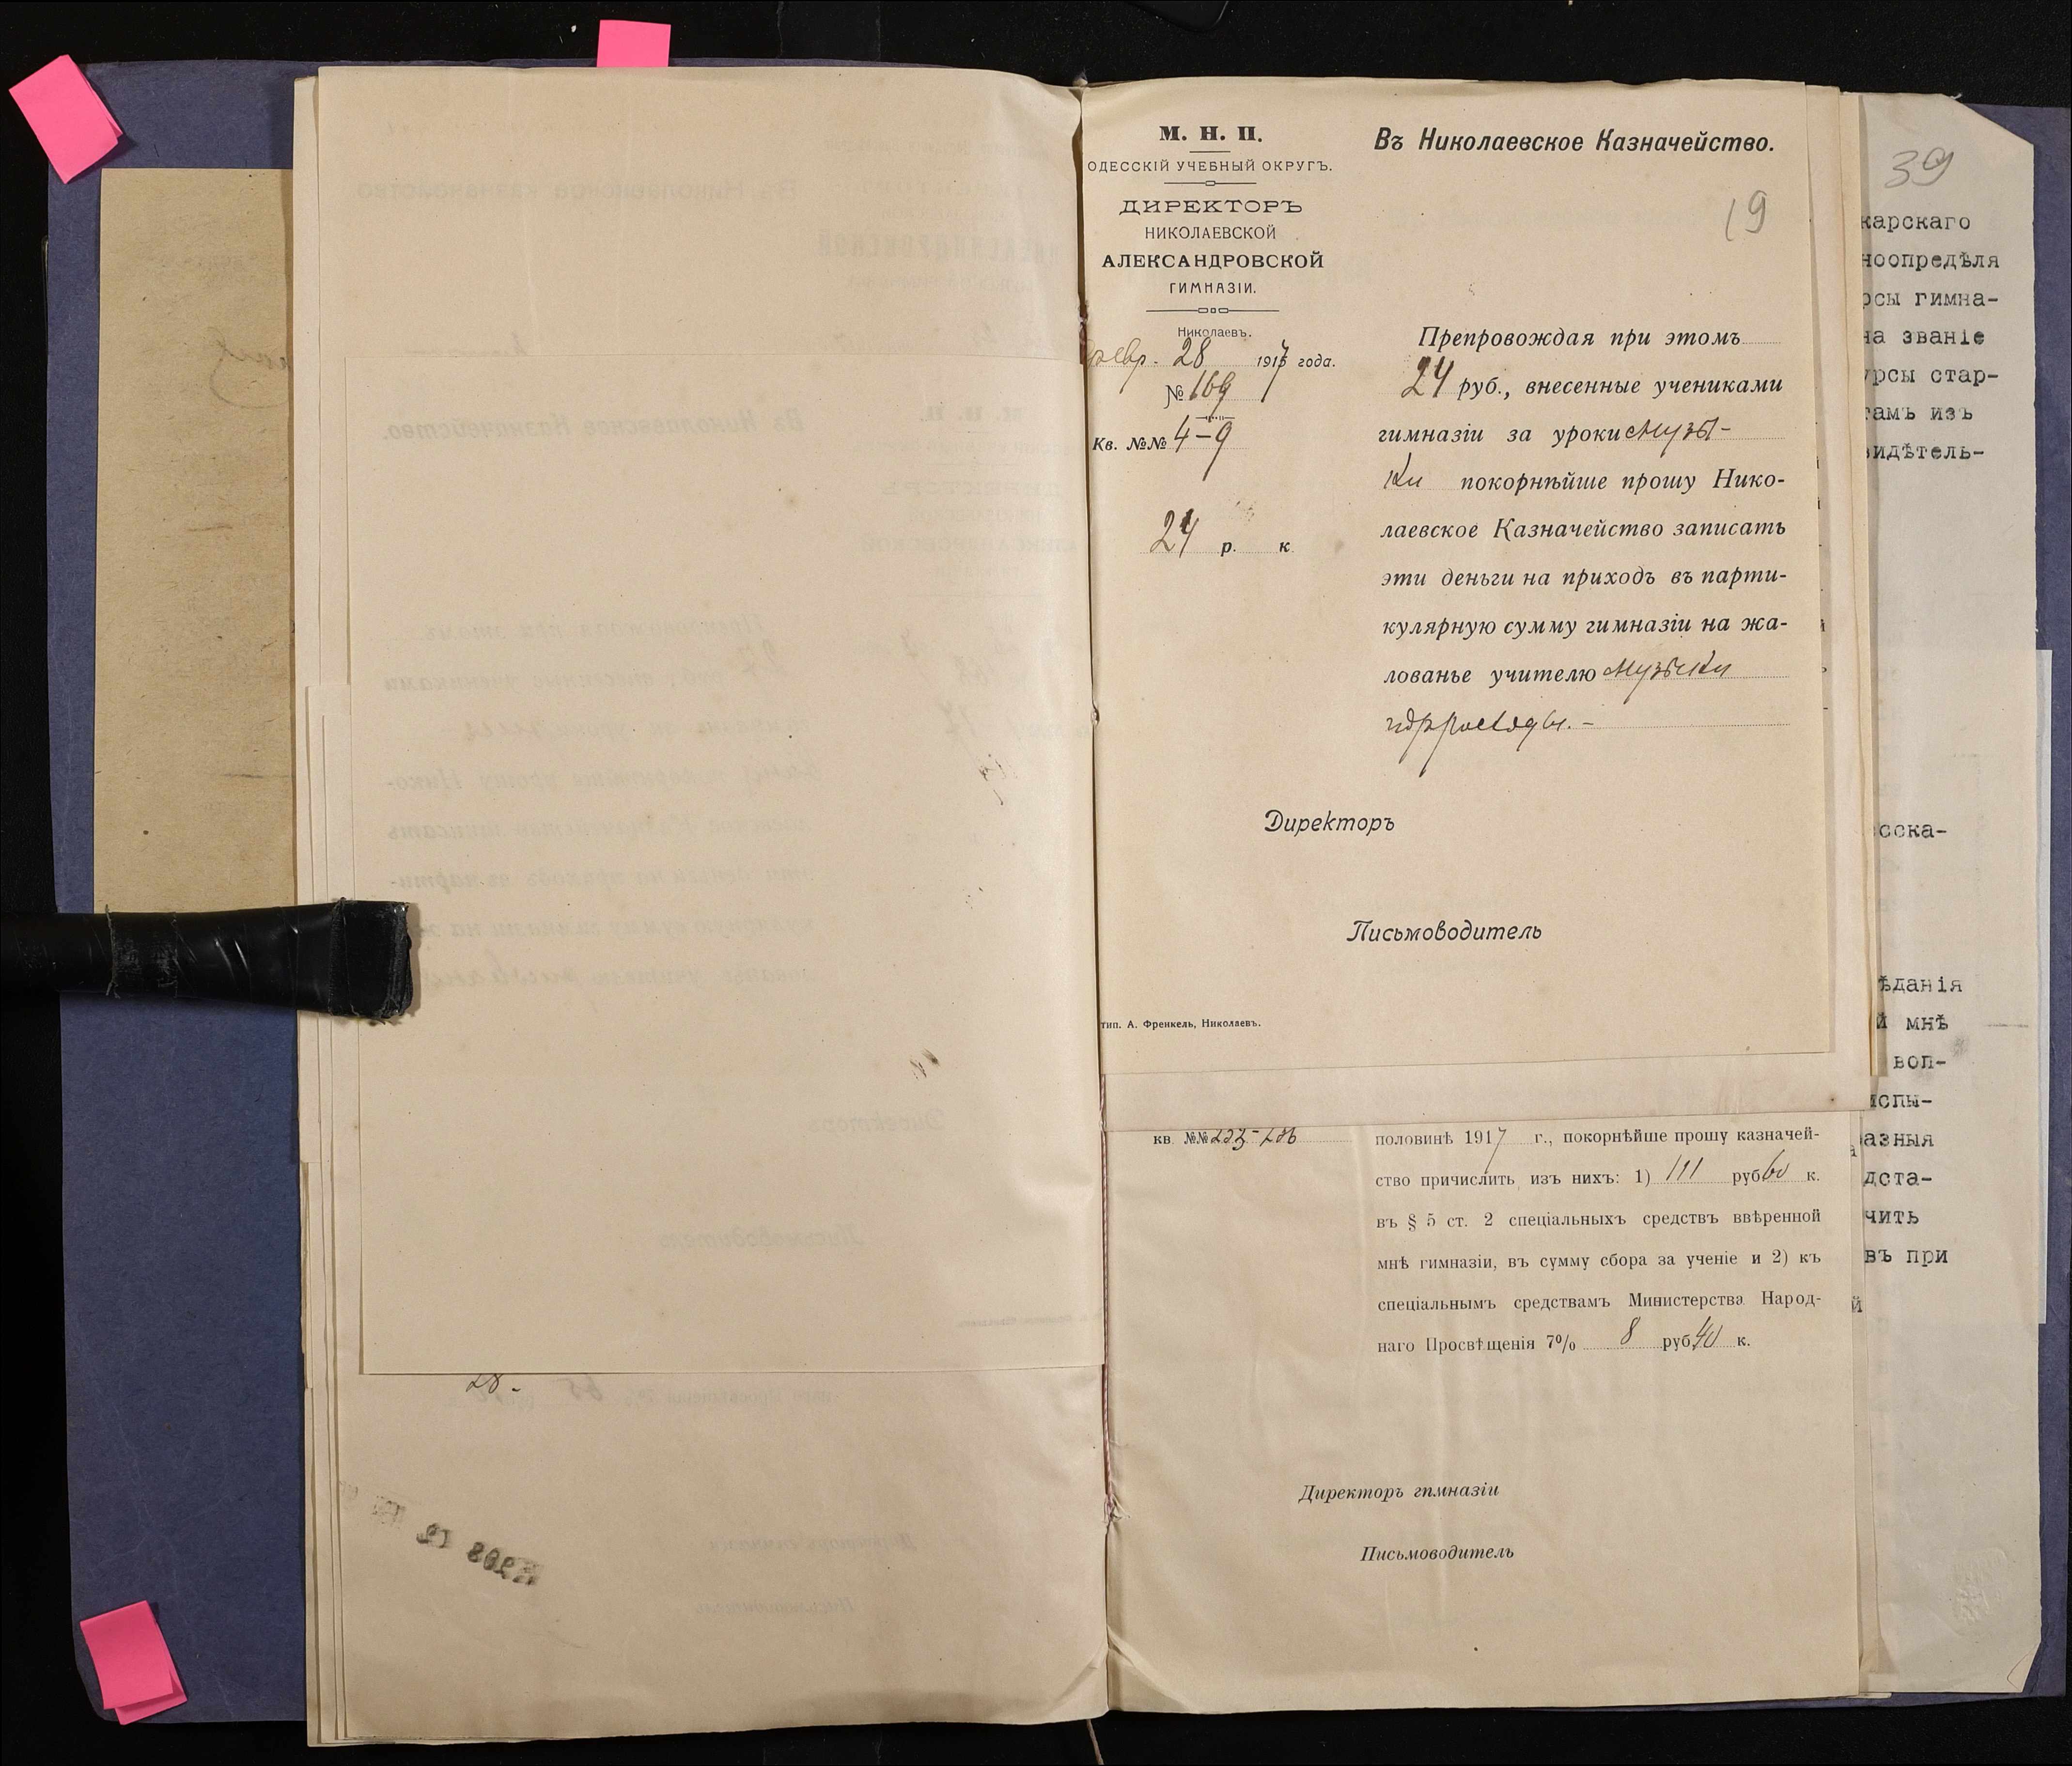 М. Н. П.
ОДЕССКІЙ УЧЕБНЫЙ ОКРУГЪ.
ДИРЕКТОРЪ
НИКОЛАЕВСКОЙ
АЛЕКСАНДРОВСКОЙ
ГИМНАЗІИ.
Николаевъ.
февр. 28 1917 года.
№ 169
Кв. №№ 4-9
24 р. к
Въ Николаевское Казначейство.
19
Препровождая при этомъ
24 руб., внесенные учениками
гимназіи за уроки музы-
ки покорнѣйше прошу Нико-
лаевское Казначейство записать
эти деньги на приходъ въ парти-
кулярную сумму гимназіи на жа-
лованье учителю музыки
Директоръ
Письмоводитель
тип. А. Френкель, Николаевъ.
кв. №№
половинѣ 1917 г., покорнѣйше прошу казначей-
ство причислить изъ нихъ: 1) 111 руб 60 к.
въ § 5 ст. 2 спеціальныхъ средствъ ввѣренной
мнѣ гимназіи, въ сумму сбора за ученіе и 2) къ
спеціальнымъ средствамъ Министерства Народ-
наго Просвѣщенія 7% 8 руб 40 к.
Директоръ гимназіи
Письмоводитель
28 -
39
карскаго
ноопредѣля
рсы гимна-
на званіе
урсы стар-
тамъ изъ
видѣтель-
сска-
ѣданія
й мнѣ
воп-
испы-
азныя
дста-
чить
въ при
й